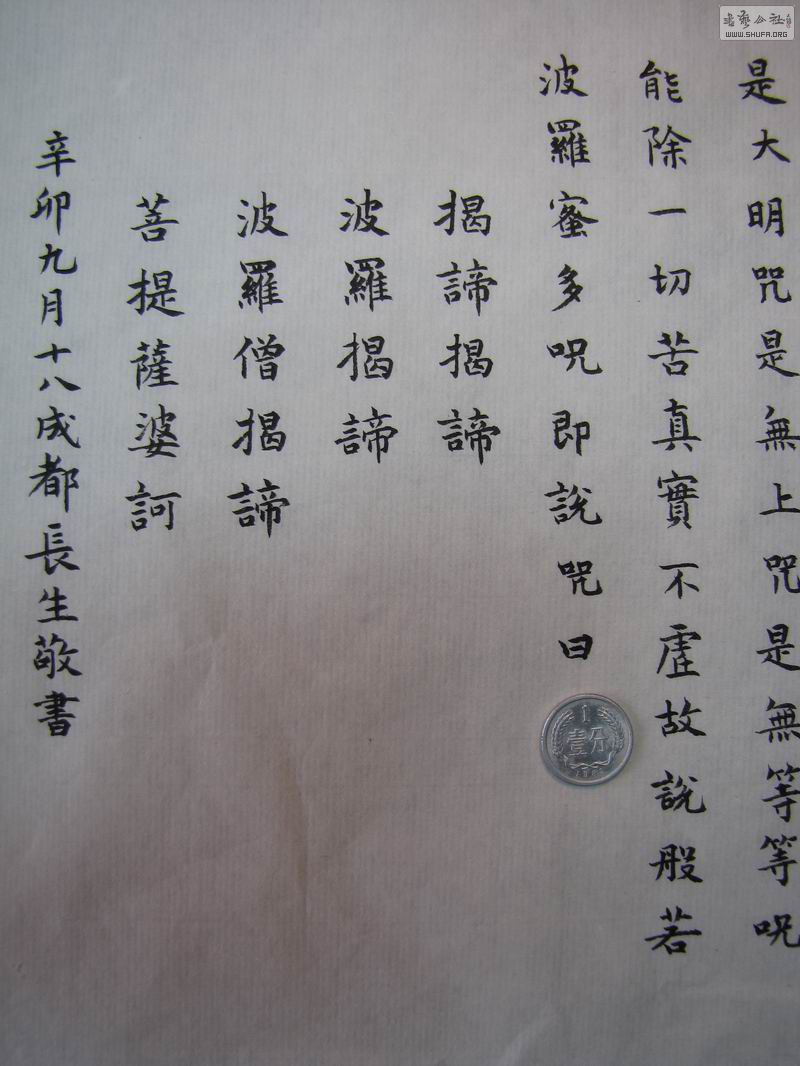 是大明咒是無上咒是無等等咒
能除一切苦真實不虛故說般若
波羅蜜多咒即說咒曰
揭諦揭諦
波羅揭諦
波羅僧揭諦
菩提薩婆訶
辛卯九月十八成都長生敬書
1
壹分
書藝公社
WWW.SHUFA.ORG